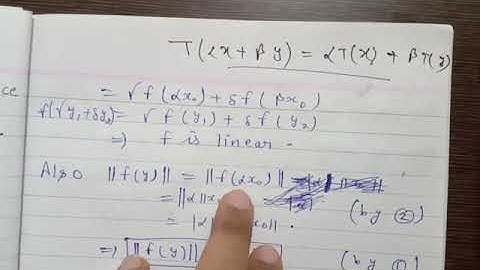 T(αx + βy) = αT(x) + βT(y)
ce
= √f(αx₀) + δf(βx₀)
f(√y₁+δy₂) = √f(y₁) + δf(y₂)
⇒ f is linear.
Also ||f(y)|| = ||f(αx₀)||
= ||α||x₀
= |α| x₀||. (by ②)
⇒ ||f(y)|| (by ①)